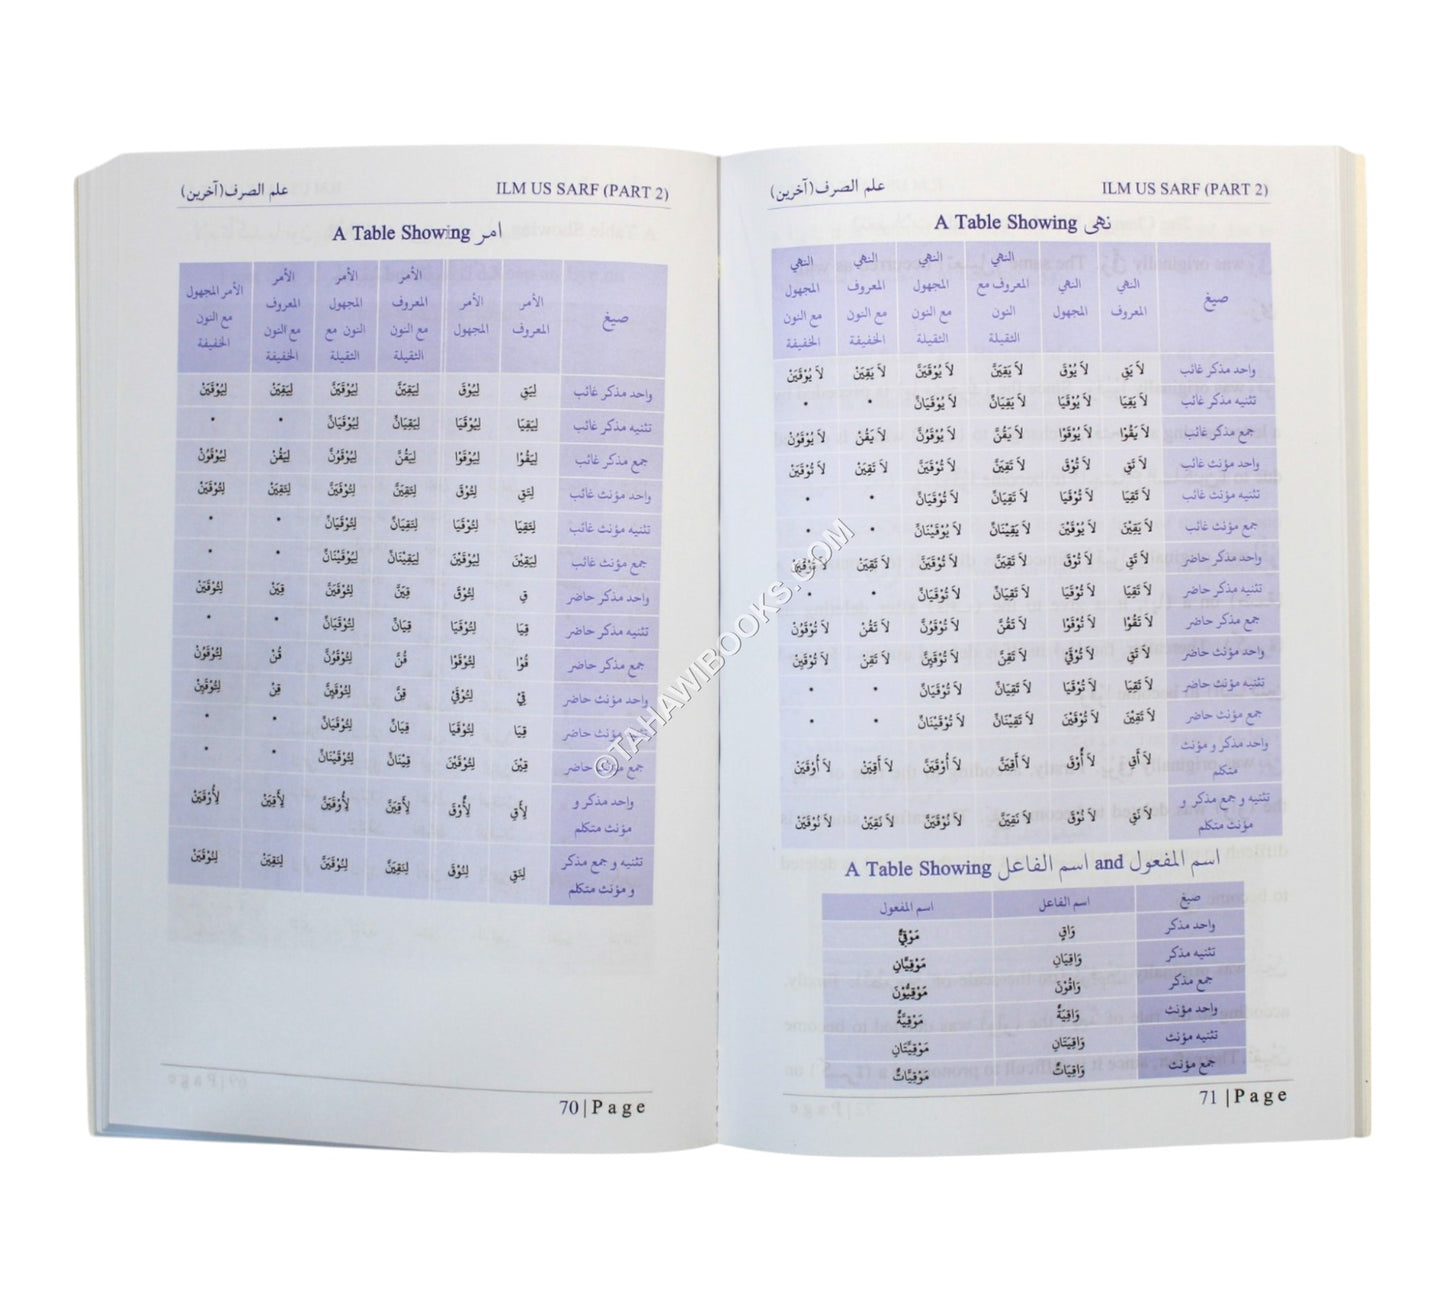 علم الصرف(آخرین) ILM US SARF (PART 2)
A Table Showing امر
صیغ الأمر المعروف الأمر المجهول الأمر المعروف مع النون الثقیلة الأمر المجهول النون مع الثقیلة الأمر المعروف مع النون الخفیفة الأمر المجهول مع النون الخفیفة
واحد مذکر غائب لِیَقِ لِیُوْقَ لِیَقِیَنَّ لِیُوْقَیَنَّ لِیَقِیَنْ لِیُوْقَیَنْ
تثنیه مذکر غائب لِیَقِیَا لِیُوْقَیَا لِیَقِیَانِّ لِیُوْقَیَانِّ • •
جمع مذکر غائب لِیَقُوْا لِیُوْقَوْا لِیَقُنَّ لِیُوْقَوُنَّ لِیَقُنْ لِیُوْقَوُنْ
واحد مؤنث غائب لِتَقِ لِتُوْقَ لِتَقِیَنَّ لِتُوْقَیَنَّ لِتَقِیَنْ لِتُوْقَیَنْ
تثنیه مؤنث غائب لِتَقِیَا لِتُوْقَیَا لِتَقِیَانِّ لِتُوْقَیَانِّ • •
جمع مؤنث غائب لِیَقِیْنَ لِیُوْقَیْنَ لِیَقِیْنَانِّ لِیُوْقَیْنَانِّ • •
واحد مذکر حاضر قِ لِتُوْقَ قِیَنَّ لِتُوْقَیَنَّ قِیَنْ لِتُوْقَیَنْ
تثنیه مذکر حاضر قِیَا لِتُوْقَیَا قِیَانِّ لِتُوْقَیَانِّ • •
جمع مذکر حاضر قُوْا لِتُوْقَوْا قُنَّ لِتُوْقَوُنَّ قُنْ لِتُوْقَوُنْ
واحد مؤنث حاضر قِيْ لِتُوْقَيْ قِنَّ لِتُوْقَیِنَّ قِنْ لِتُوْقَیِنْ
تثنیه مؤنث حاضر قِیَا لِتُوْقَیَا قِیَانِّ لِتُوْقَیَانِّ • •
جمع مؤنث حاضر قِیْنَ لِتُوْقَیْنَ قِیْنَانِّ لِتُوْقَیْنَانِّ • •
واحد مذکر و مؤنث متکلم لِأَقِ لِأُوْقَ لِأَقِیَنَّ لِأُوْقَیَنَّ لِأَقِیَنْ لِأُوْقَیَنْ
تثنیه و جمع مذکر و مؤنث متکلم لِنَقِ لِنُوْقَ لِنَقِیَنَّ لِنُوْقَیَنَّ لِنَقِیَنْ لِنُوْقَیَنْ
70 | Page
علم الصرف(آخرین) ILM US SARF (PART 2)
A Table Showing نهی
صیغ النهي المعروف النهي المجهول النهي المعروف مع النون الثقیلة النهي المجهول مع النون الثقیلة النهي المعروف مع النون الخفیفة النهي المجهول مع النون الخفیفة
واحد مذکر غائب لاَ یَقِ لاَ یُوْقَ لاَ یَقِیَنَّ لاَ یُوْقَیَنَّ لاَ یَقِیَنْ لاَ یُوْقَیَنْ
تثنیه مذکر غائب لاَ یَقِیَا لاَ یُوْقَیَا لاَ یَقِیَانِّ لاَ یُوْقَیَانِّ • •
جمع مذکر غائب لاَ یَقُوْا لاَ یُوْقَوْا لاَ یَقُنَّ لاَ یُوْقَوُنَّ لاَ یَقُنْ لاَ یُوْقَوُنْ
واحد مؤنث غائب لاَ تَقِ لاَ تُوْقَ لاَ تَقِیَنَّ لاَ تُوْقَیَنَّ لاَ تَقِیَنْ لاَ تُوْقَیَنْ
تثنیه مؤنث غائب لاَ تَقِیَا لاَ تُوْقَیَا لاَ تَقِیَانِّ لاَ تُوْقَیَانِّ • •
جمع مؤنث غائب لاَ یَقِیْنَ لاَ یُوْقَیْنَ لاَ یَقِیْنَانِّ لاَ یُوْقَیْنَانِّ • •
واحد مذکر حاضر لاَ تَقِ لاَ تُوْقَ لاَ تَقِیَنَّ لاَ تُوْقَیَنَّ لاَ تَقِیَنْ لاَ تُوْقَیَنْ
تثنیه مذکر حاضر لاَ تَقِیَا لاَ تُوْقَیَا لاَ تَقِیَانِّ لاَ تُوْقَیَانِّ • •
جمع مذکر حاضر لاَ تَقُوْا لاَ تُوْقَوْا لاَ تَقُنَّ لاَ تُوْقَوُنَّ لاَ تَقُنْ لاَ تُوْقَوُنْ
واحد مؤنث حاضر لاَ تَقِي لاَ تُوْقَيْ لاَ تَقِنَّ لاَ تُوْقَیِنَّ لاَ تَقِنْ لاَ تُوْقَیِنْ
تثنیه مؤنث حاضر لاَ تَقِیَا لاَ تُوْقَیَا لاَ تَقِیَانِّ لاَ تُوْقَیَانِّ • •
جمع مؤنث حاضر لاَ تَقِیْنَ لاَ تُوْقَیْنَ لاَ تَقِیْنَانِّ لاَ تُوْقَیْنَانِّ • •
واحد مذکر و مؤنث متکلم لاَ أَقِ لاَ أُوْقَ لاَ أَقِیَنَّ لاَ أُوْقَیَنَّ لاَ أَقِیَنْ لاَ أُوْقَیَنْ
تثنیه و جمع مذکر و مؤنث متکلم لاَ نَقِ لاَ نُوْقَ لاَ نَقِیَنَّ لاَ نُوْقَیَنَّ لاَ نَقِیَنْ لاَ نُوْقَیَنْ
A Table Showing اسم الفاعل and اسم المفعول
صیغ اسم الفاعل اسم المفعول
واحد مذکر وَاقٍ مَوْقِيٌّ
تثنیه مذکر وَاقِیَانِ مَوْقِیَّانِ
جمع مذکر وَاقُوْنَ مَوْقِیُّوْنَ
واحد مؤنث وَاقِیَةٌ مَوْقِیَّةٌ
تثنیه مؤنث وَاقِیَتَانِ مَوْقِیَّتَانِ
جمع مؤنث وَاقِیَاتٌ مَوْقِیَّاتٌ
71 | Page
©TAHAWIBOOKS.COM